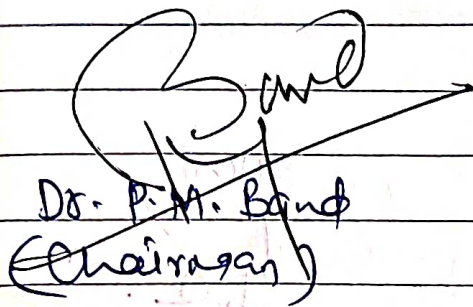 Band
Dr. P. M. Band
(Chairman)